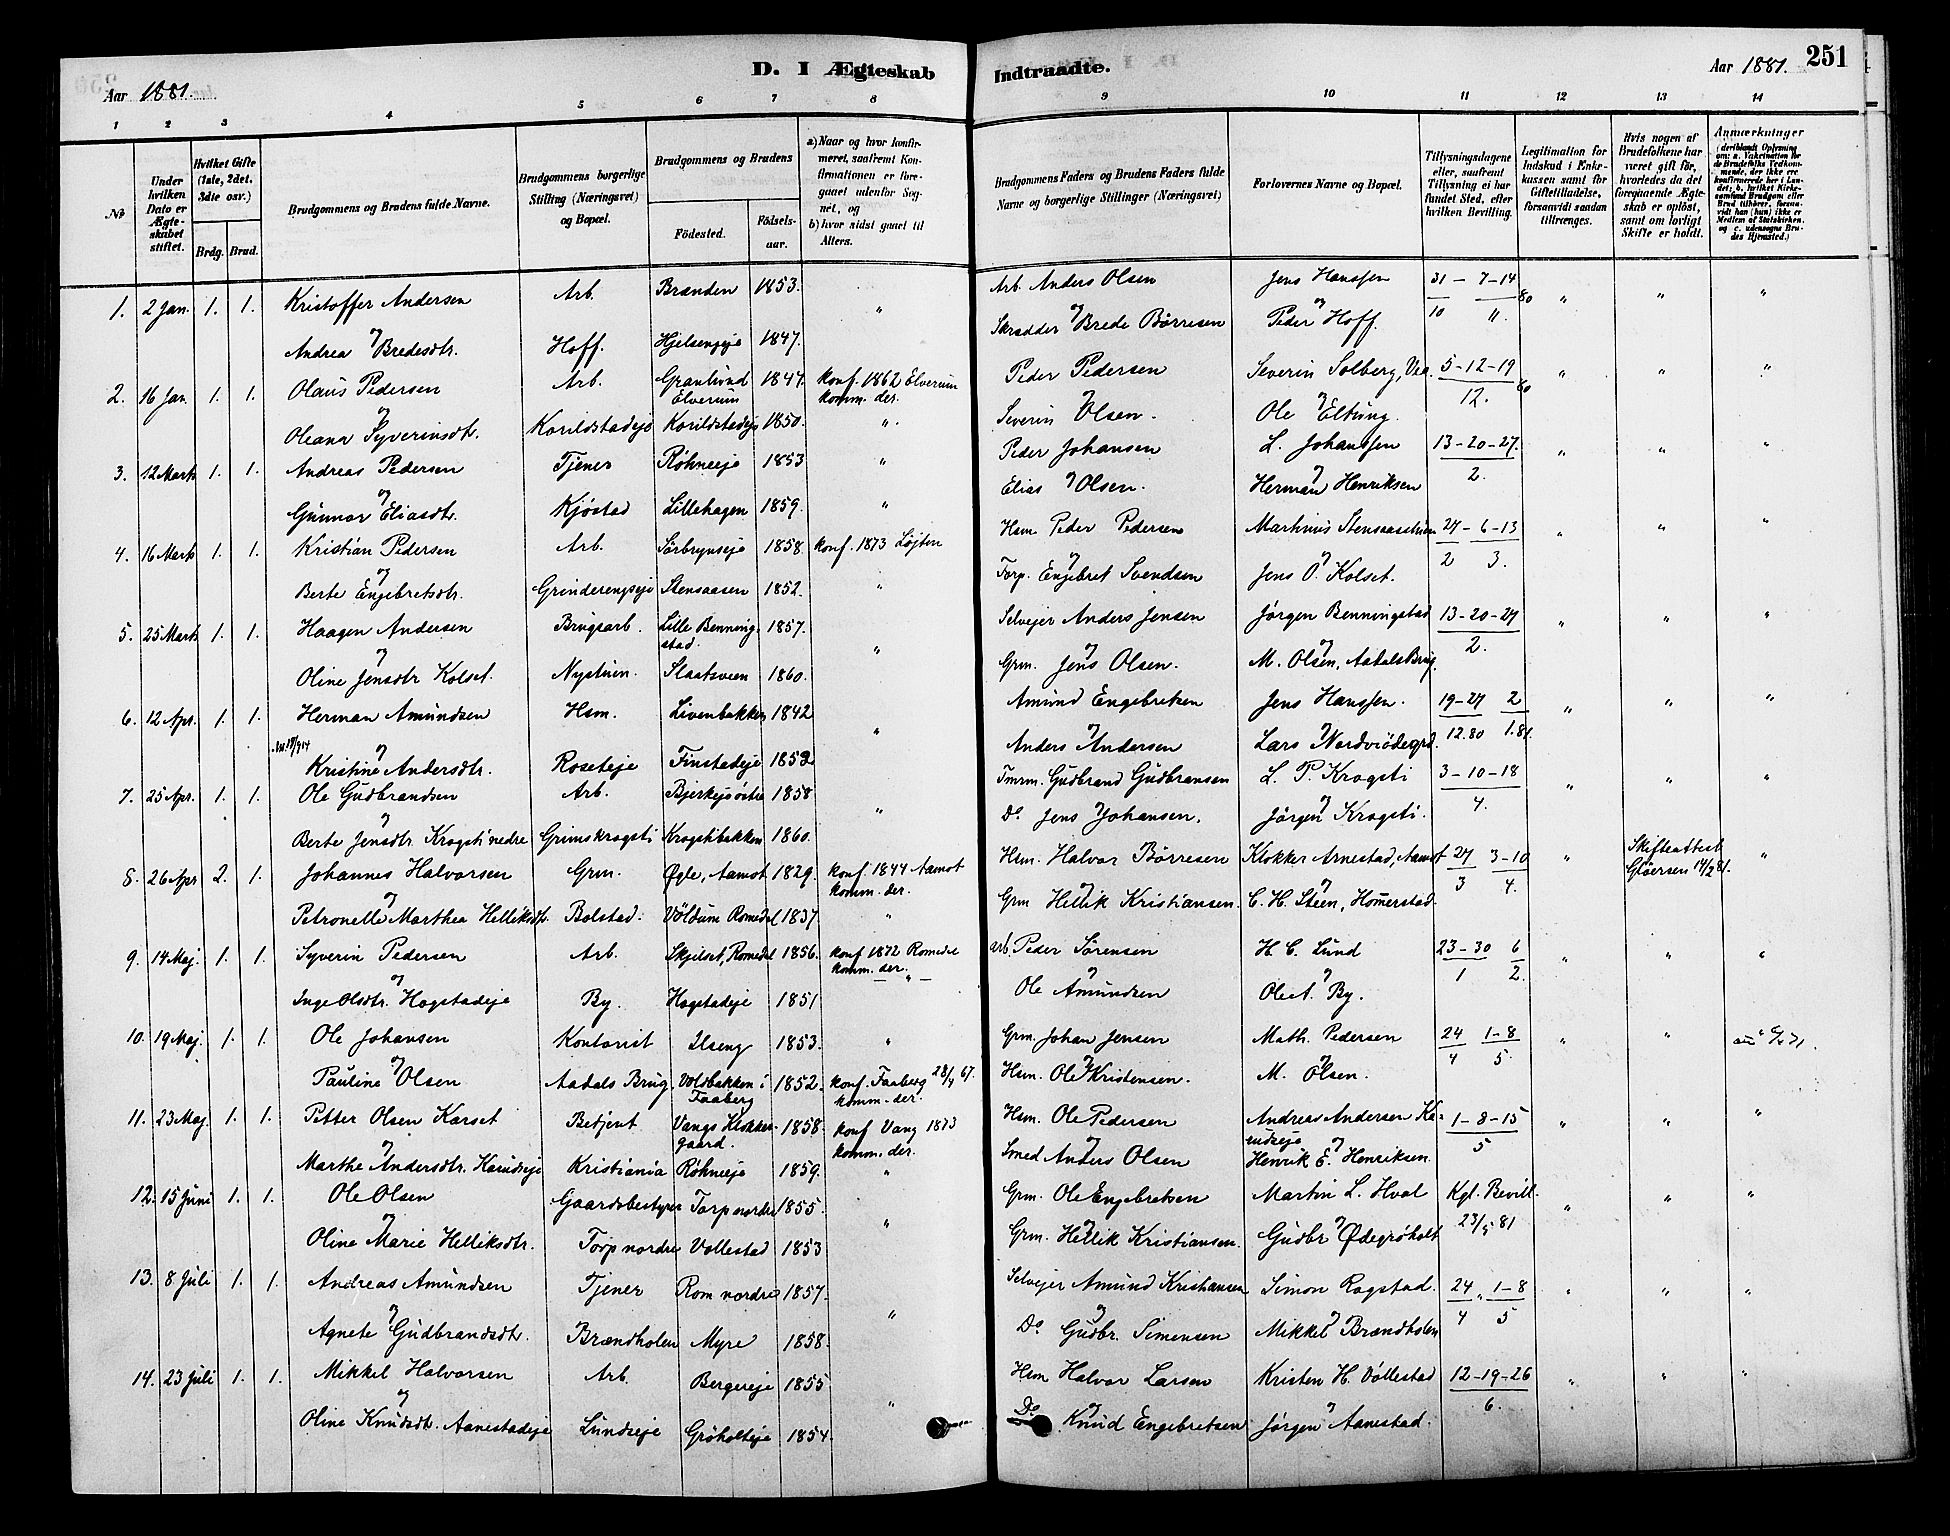 Aar 1881.
D. I Ægteskab
Indtraadte.
Aar 1881.
251
1 2 3 4 5 6 7 8 9 10 11 12 13 14
No
Under hvilken Dato er Ægteskabet stiftet.
Hvilket Gifte (1ste, 2det. 3die osv.)
Brdg. Brud.
Brudgommens og Brudens fulde Navne.
Brudgommens borgerlige Stilling (Næringsvei) og Bopæl.
Brudgommens og Brudens
Fødested.
Fødselsaar.
a) Naar og hvor konfirmeret, saafremt Konfirmationen er foregaaet udenfor Sognet, og
b) hvor sidst gaaet til Alters.
Brudgommens Faders og Brudens Faders fulde Navne og borgerlige Stillinger (Næringsvei)
Forlovernes Navne og Bopæl.
Tillysningsdagene eller, saafremt Tillysning ei har fundet Sted, efter hvilken Bevilling.
Legitimation for Indskud i Enkekassen samt for Giftetilladelse, forsaavidt saadan tiltrænges.
Hvis nogen af Brudefolkene har været gift før, hvorledes da det foregaaende Ægteskab er opløst, samt om lovligt Skifte er holdt.
Anmærkninger (deriblandt Oplysning om: a. Vakcination for de Brudefolks Vedkommende, der ikke ere konfirmerede her i Landet; b. hvilket Kirkesamfund Brudgom eller Brud tilhører, forsaavidt han (hun) ikke er Medlem af Statskirken, og c. udensogns Brudes Hjemsted.)
1. 2 Jan. 1. 1. Kristoffer Andersen Arb. Brenden 1853. " Arb. Anders Olsen Jens Hanssen 31/10 – 7–14/11 80 " " "
og
Andrea Bredesdtr. Hoff. Hjelsengeje 1847. Skrædder Brede Börresen Peder Hoff.
2. 16 Jan. 1. 1. Olaus Pedersen Arb. Granlund Elverum 1847. konf. 1862 Elverum komm. der. Peder Pedersen Severin Solberg, Vea. 5–12–19/12. 80 " " "
og
Oleana Syverinsdtr. Korildstadeje Korildstadeje 1850. ". Severin Olsen. Ole Eltung.
3. 12 Marts 1. 1. Andreas Pedersen Tjener Röhneeje 1853 " Peder Johansen L. Johanssen 13–20–27/2. " " "
og
Gunnor Eliasdtr. Kjöstad Lillehagen 1859. " Elias Olsen. Herman Henriksen
4. 16 Marts 1. 1. Kristian Pedersen Arb. Sörbrynseje 1858. konf. 1873 Löjten Hsm. Peder Pedersen Martinus 27/2 – 6–13/3. " " "
og
Berte Engebretsdtr. Grinderengseje Stensaasen 1852. " Torp. Engebret Svendsen Jens O. Kolset.
5. 25 Marts 1. 1. Haagen Andersen Brugsarb. Lille Benningstad. 1857. " Selvejer Anders Jensen Jörgen Benningstad 13–20–27/2. " " "
og
Oline Jensdtr Kolset. Nystuen. Slaatsveen 1860. Grm. Jens Olsen. M. Olsen, Aadals Brug.
6. 12 Apr. 1. 1. Herman Amundsen Hsm. Livenbakken 1842 " Amund Engebretsen Jens Hanssen. 19–27/12.80 2/1.81. " " "
og
Kristine Andersdtr. Roseteje Finstadeje 1852 Anders Andersen Lars Nordviödegrd.
7. 25 Apr. 1. 1. Ole Gudbrandsen Arb. Bjerkejsöstre 1858 " Tmrm. Gudbrand Gudbransen L. P. Krogsti 3–10–18/4. " " "
og
Berte Jensdtr Krogsti nedre Grimskrogsti Krogstibakken 1860. Do. Jens Johansen. Jörgen Krogsti.
8. 26 Apr 2. 1. Johannes Halvorsen Grm. Ögle, Aamot 1829. konf. 1844 Aamot komm. der. Hsm. Halvor Börresen Klokker Arnestad, Aamot 27/3 3–10/4. " Skifteattest Glöersen 14/2 81. "
og
Petronelle Marthea Helliksdtr. Bolstad. Völdum Romedal 1837. " Grm Hellik Kristiansen. C. H. Steen, Homerstad.
9. 14 Maj. 1. 1. Syverin Pedersen Arb. Skjelset, Romedal 1856. konf 1872 Romedal komm. der. arb. Peder Sörensen H. C. Lund 23–30/1 6/2. " " "
og
Inge Olsdtr. Hogstadeje By. Hogstadeje 1851 — " — Ole Amundsen Ole A. By.
10. 19 Maj. 1. 1. Ole Johansen Kontorist Ilseng 1853. " Grm. Johan Jensen Math. Pedersen 24/4 1–8/5. " "
og
Pauline Olsen Aadals Brug. Voldbakken i Faaberg 1852. konf. Faaberg 28/4 67. komm. der. Hsm. Ole Kristensen. M. Olsen.
11. 23 Maj. 1. 1. Petter Olsen Karset Betjent Vangs Klokkergaard. 1858. konf Vang 1873 komm. der. Hsm. Ole Pedersen Andreas Andersen 1–8–15/5 " " "
og
Marthe Andersdtr. Karudseje Kristiania Röhneeje 1859. " Smed Anders Olsen Henrik E. Henriksen.
12. 15 Juni 1. 1. Ole Olsen Gaardsbestyrer Torp nordre 1855. " Grm. Ole Engebretsen Martin L. Hval Kgl. Bevill. 23/5 81 " " "
og
Oline Marie Helliksdtr. Torp nordre Vollestad 1853 Grm. Hellik Kristiansen. Gudbr Ödegröholt
13. 8 Juli 1. 1. Andreas Amundsen Tjener Rom nordre 1857. " Selvejer Amund Kristiansen Simon Rogstad. 24/4 1–8/5 " " "
og
Agnete Gudbrandsdtr. Brændholen Myre 1858. Do. Gudbr. Simensen Mikkel Brændholen
14. 23 Juli 1. 1. Mikkel Halvorsen Arb. Bergereje 1855 " Hsm Halvor Larsen Kristen H. Völlestad 12–19–26/6. " " "
og
Oline Knudsdt. Aanestadeje Lundseje Gröholteje 1854. Do Knud Engebretsen Jörgen Aanestad.